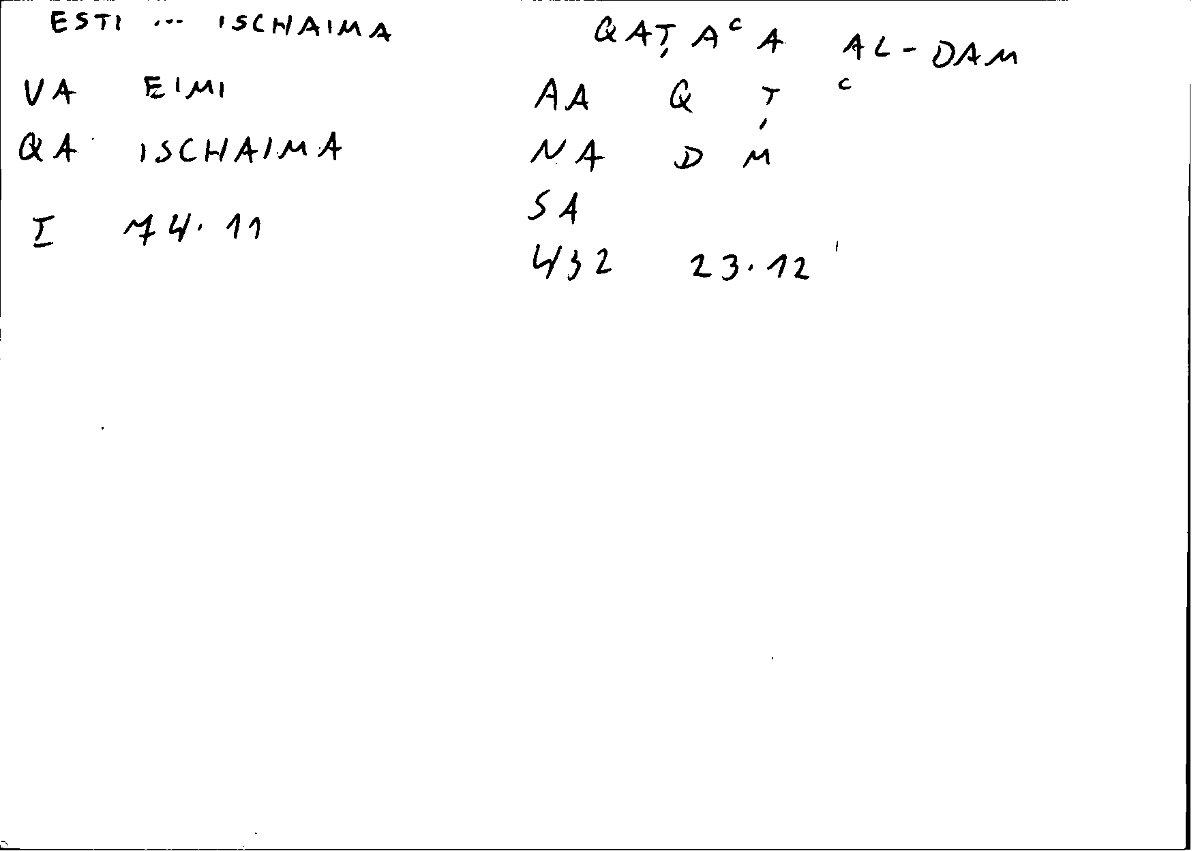 ESTI ... ISCHAIMA QAṬAᶜA AL-DAM
VA EIMI AA Q Ṭ ᶜ
QA ISCHAIMA NA D M
SA
I 74.11
432 23.12